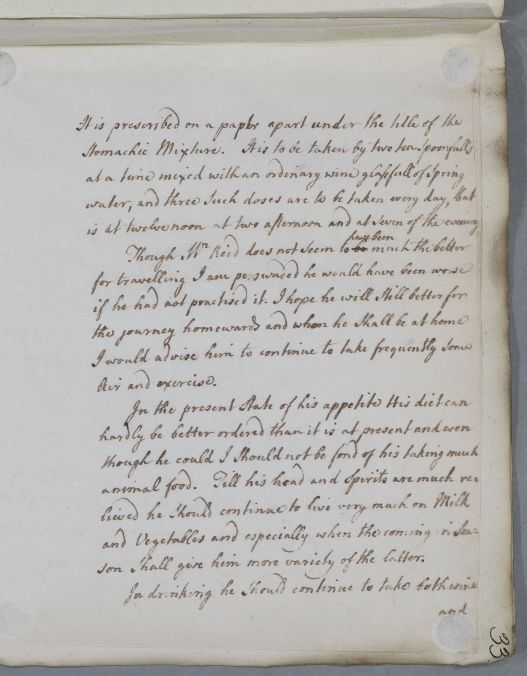 It is prescribed on a paper apart under the title of the
Stomachic Mixture. It is to be taken by two tea spoonfulls
at a time mixed with an ordinary wine glassfull of Spring
water, and three Such doses are to be taken every day, that
is at twelve noon at two afternoon and at Seven of the evening
Though Mr. Reid does not Seem to be have been much the better
for travelling I am perswaded he would have been worse
if he had not practised it. I hope he will Still better for
the journey homewards and when he Shall be at home
I would advise him to continue to take frequently Some
Air and exercise.
In the present State of his appetite His diet can
hardly be better ordered than it is at present and even
though he could I Should not be fond of his taking much
animal food. Till his head and Spirits are much re
lieved he Should continue to live very much on Milk
and Vegetables and especially when the coming in Sea-
son Shall give him more variety of the latter.
In drinking he Should continue to take both wine
and
33